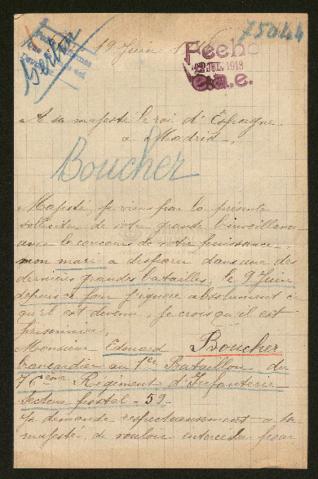 75044
Berlin
19 Juin 1918
Fecho
JUL. 1918
e.a.e.
A sa majesté le roi d'Espagne
a Madrid.
Boucher
Majesté je viens par la présente
solliciter de votre grande bienveillan-
ce le concours de votre puissance,
mon mari a disparu dans une des
dernières grandes batailles, le 9 Juin
depuis ce jour j'ignore absolument ce
qu'il est devenu, je crois qu'il est
prisonnier,
Monsieur Edouard Boucher
brancardier au 1er Bataillon du
Régiment d'Infanterie
Secteur postal - 59 -
je demande respectueusement a sa
majesté, de vouloir intercéder pour